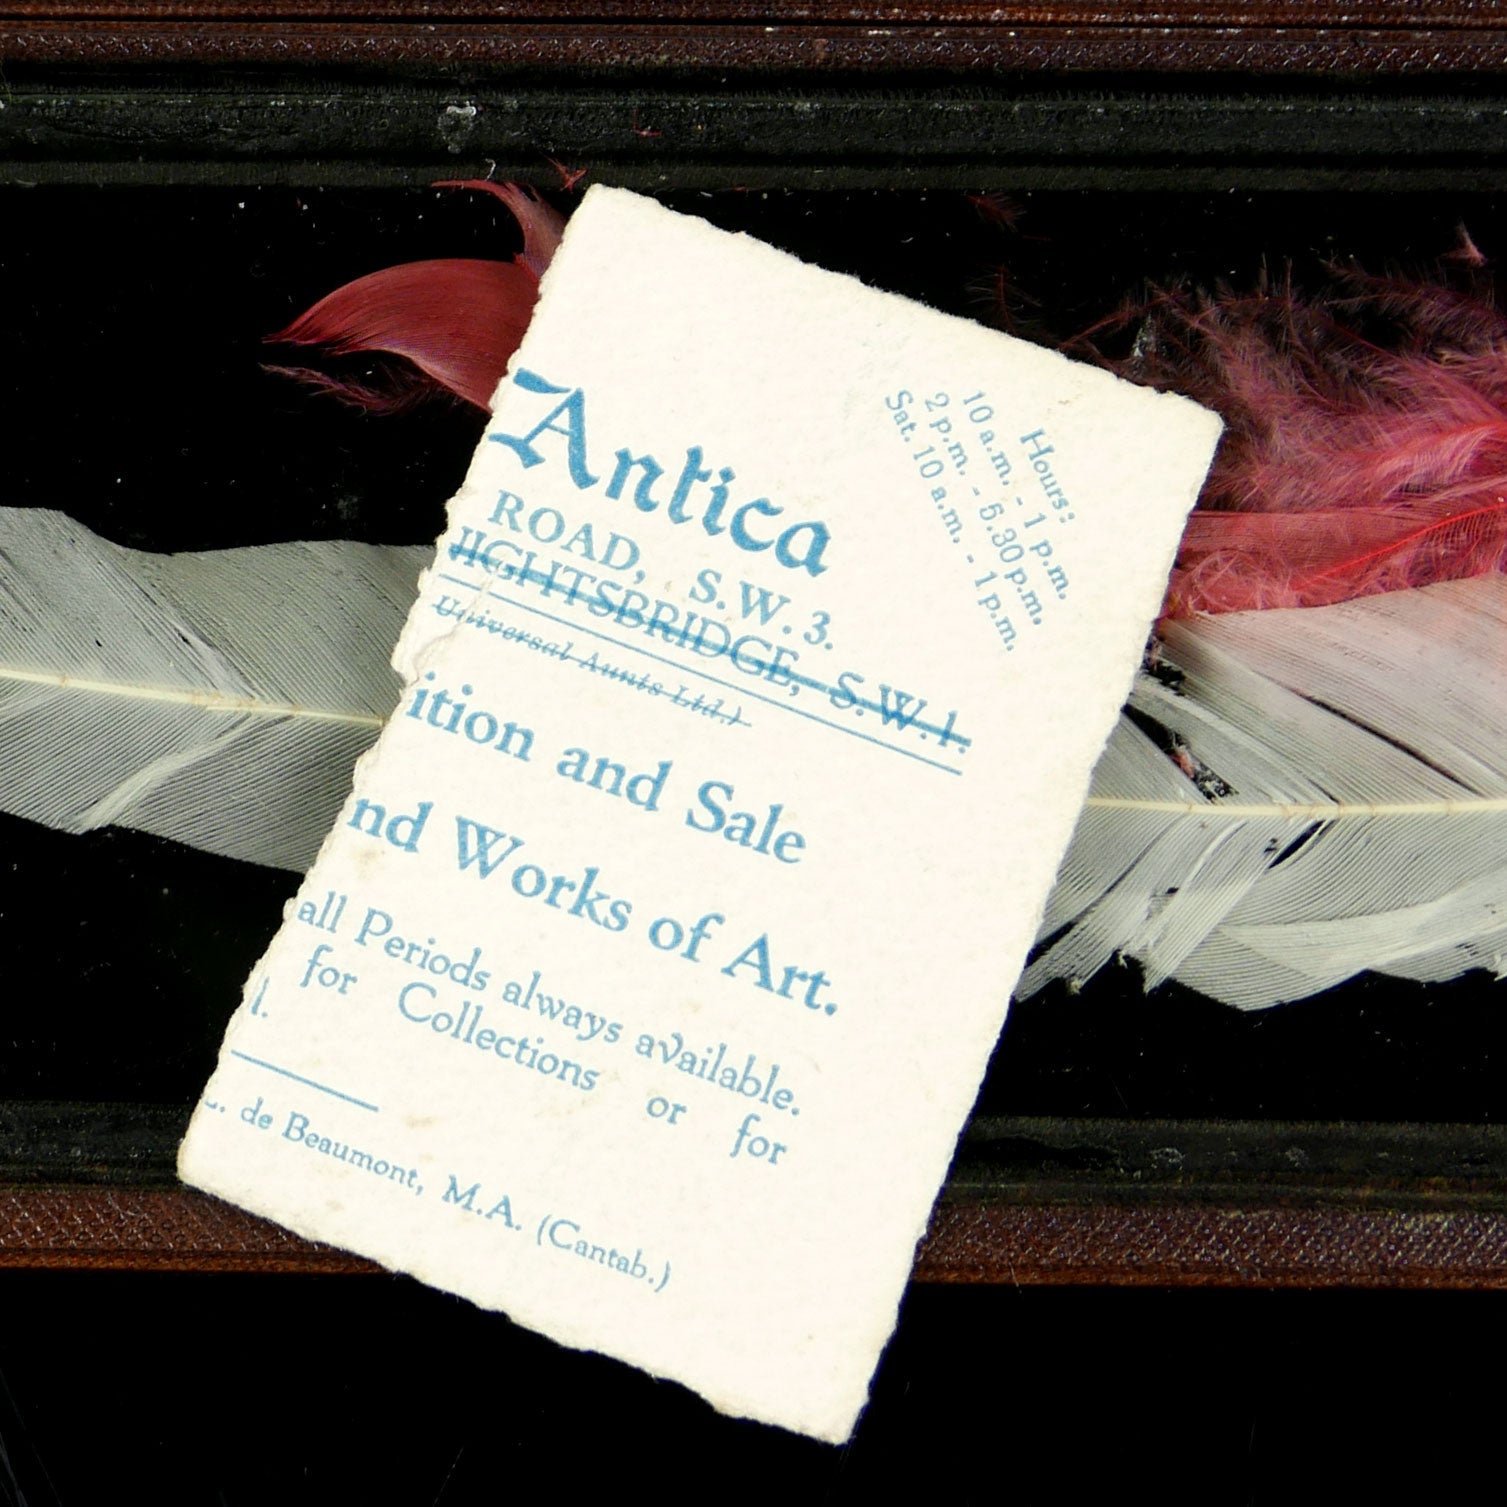 Hours:
10 a.m. - 1 p.m.
2 p.m. - 5.30 p.m.
Sat. 10 a.m. - 1 p.m.
Antica
ROAD, S.W.3.
NIGHTSBRIDGE, S.W.1.
Universal Aunts Ltd.)
ition and Sale
nd Works of Art.
all Periods always available.
for Collections or for
l.
L. de Beaumont, M.A. (Cantab.)